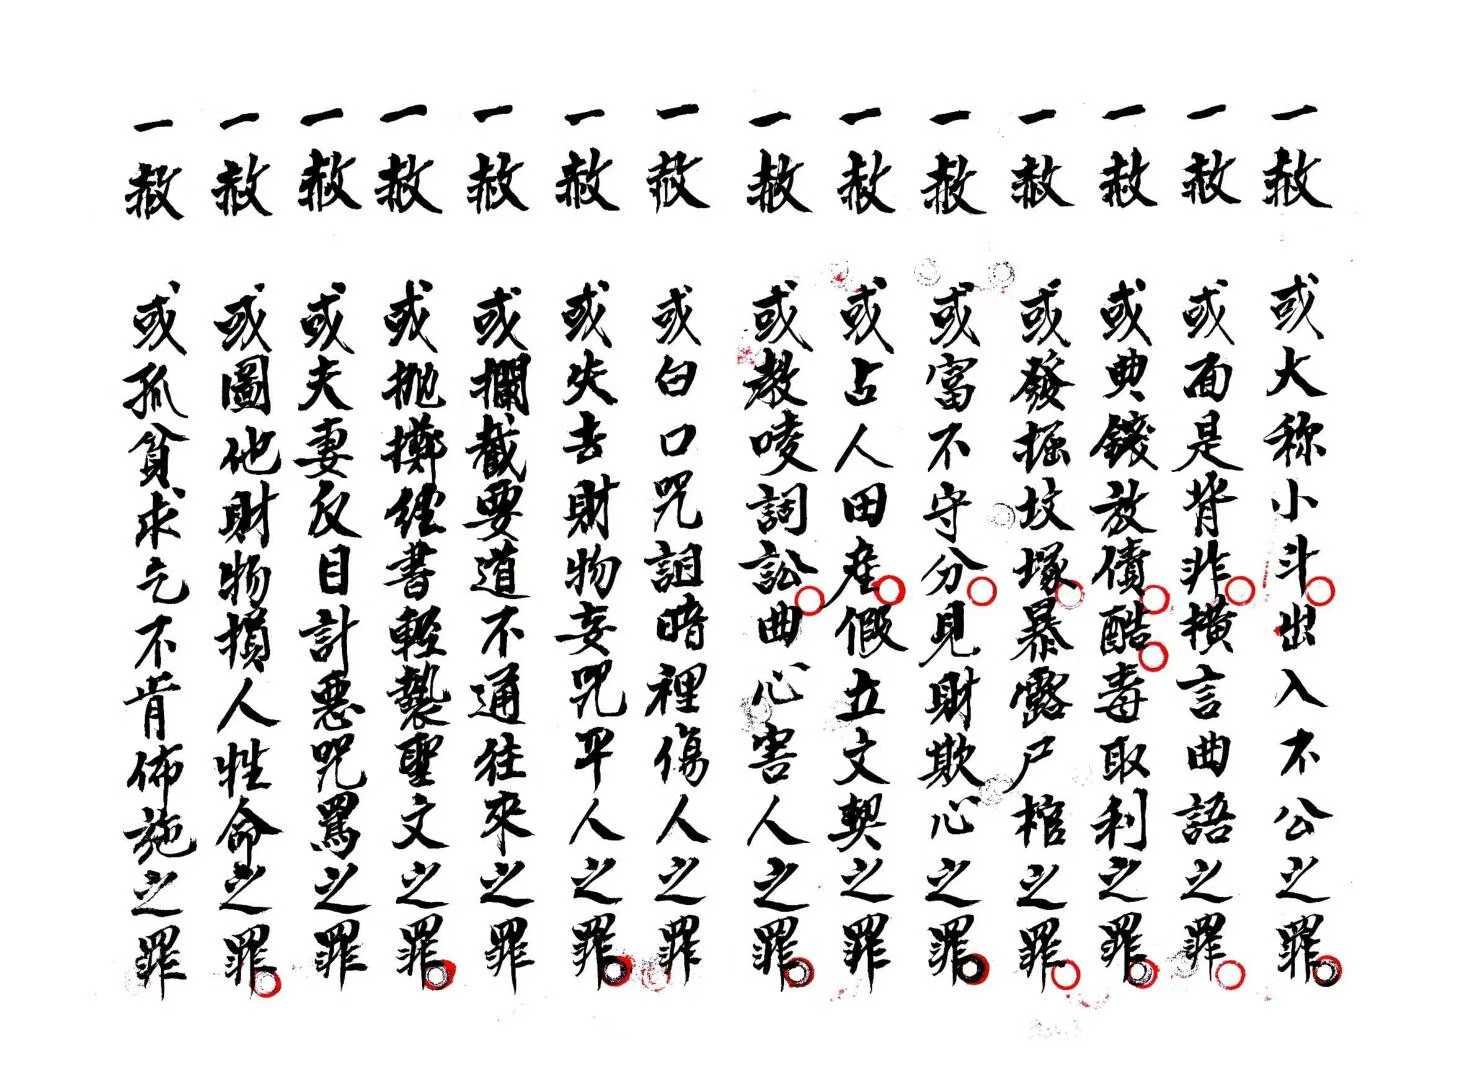 一赦 或大称小斗出入不公之罪
一赦 或面是背非横言曲語之罪
一赦 或典錢放債酷毒取利之罪
一赦 或發掘坟塚暴露尸棺之罪
一赦 或富不守分見財欺心之罪
一赦 或占人田产假立文契之罪
一赦 或教唆詞訟曲心害人之罪
一赦 或白口咒詛暗裡傷人之罪
一赦 或失去財物妄咒平人之罪
一赦 或攔截要道不通往來之罪
一赦 或抛擲經書輕褻聖文之罪
一赦 或夫妻反目計惡咒罵之罪
一赦 或圖他財物損人性命之罪
一赦 或孤貧求乞不肯佈施之罪